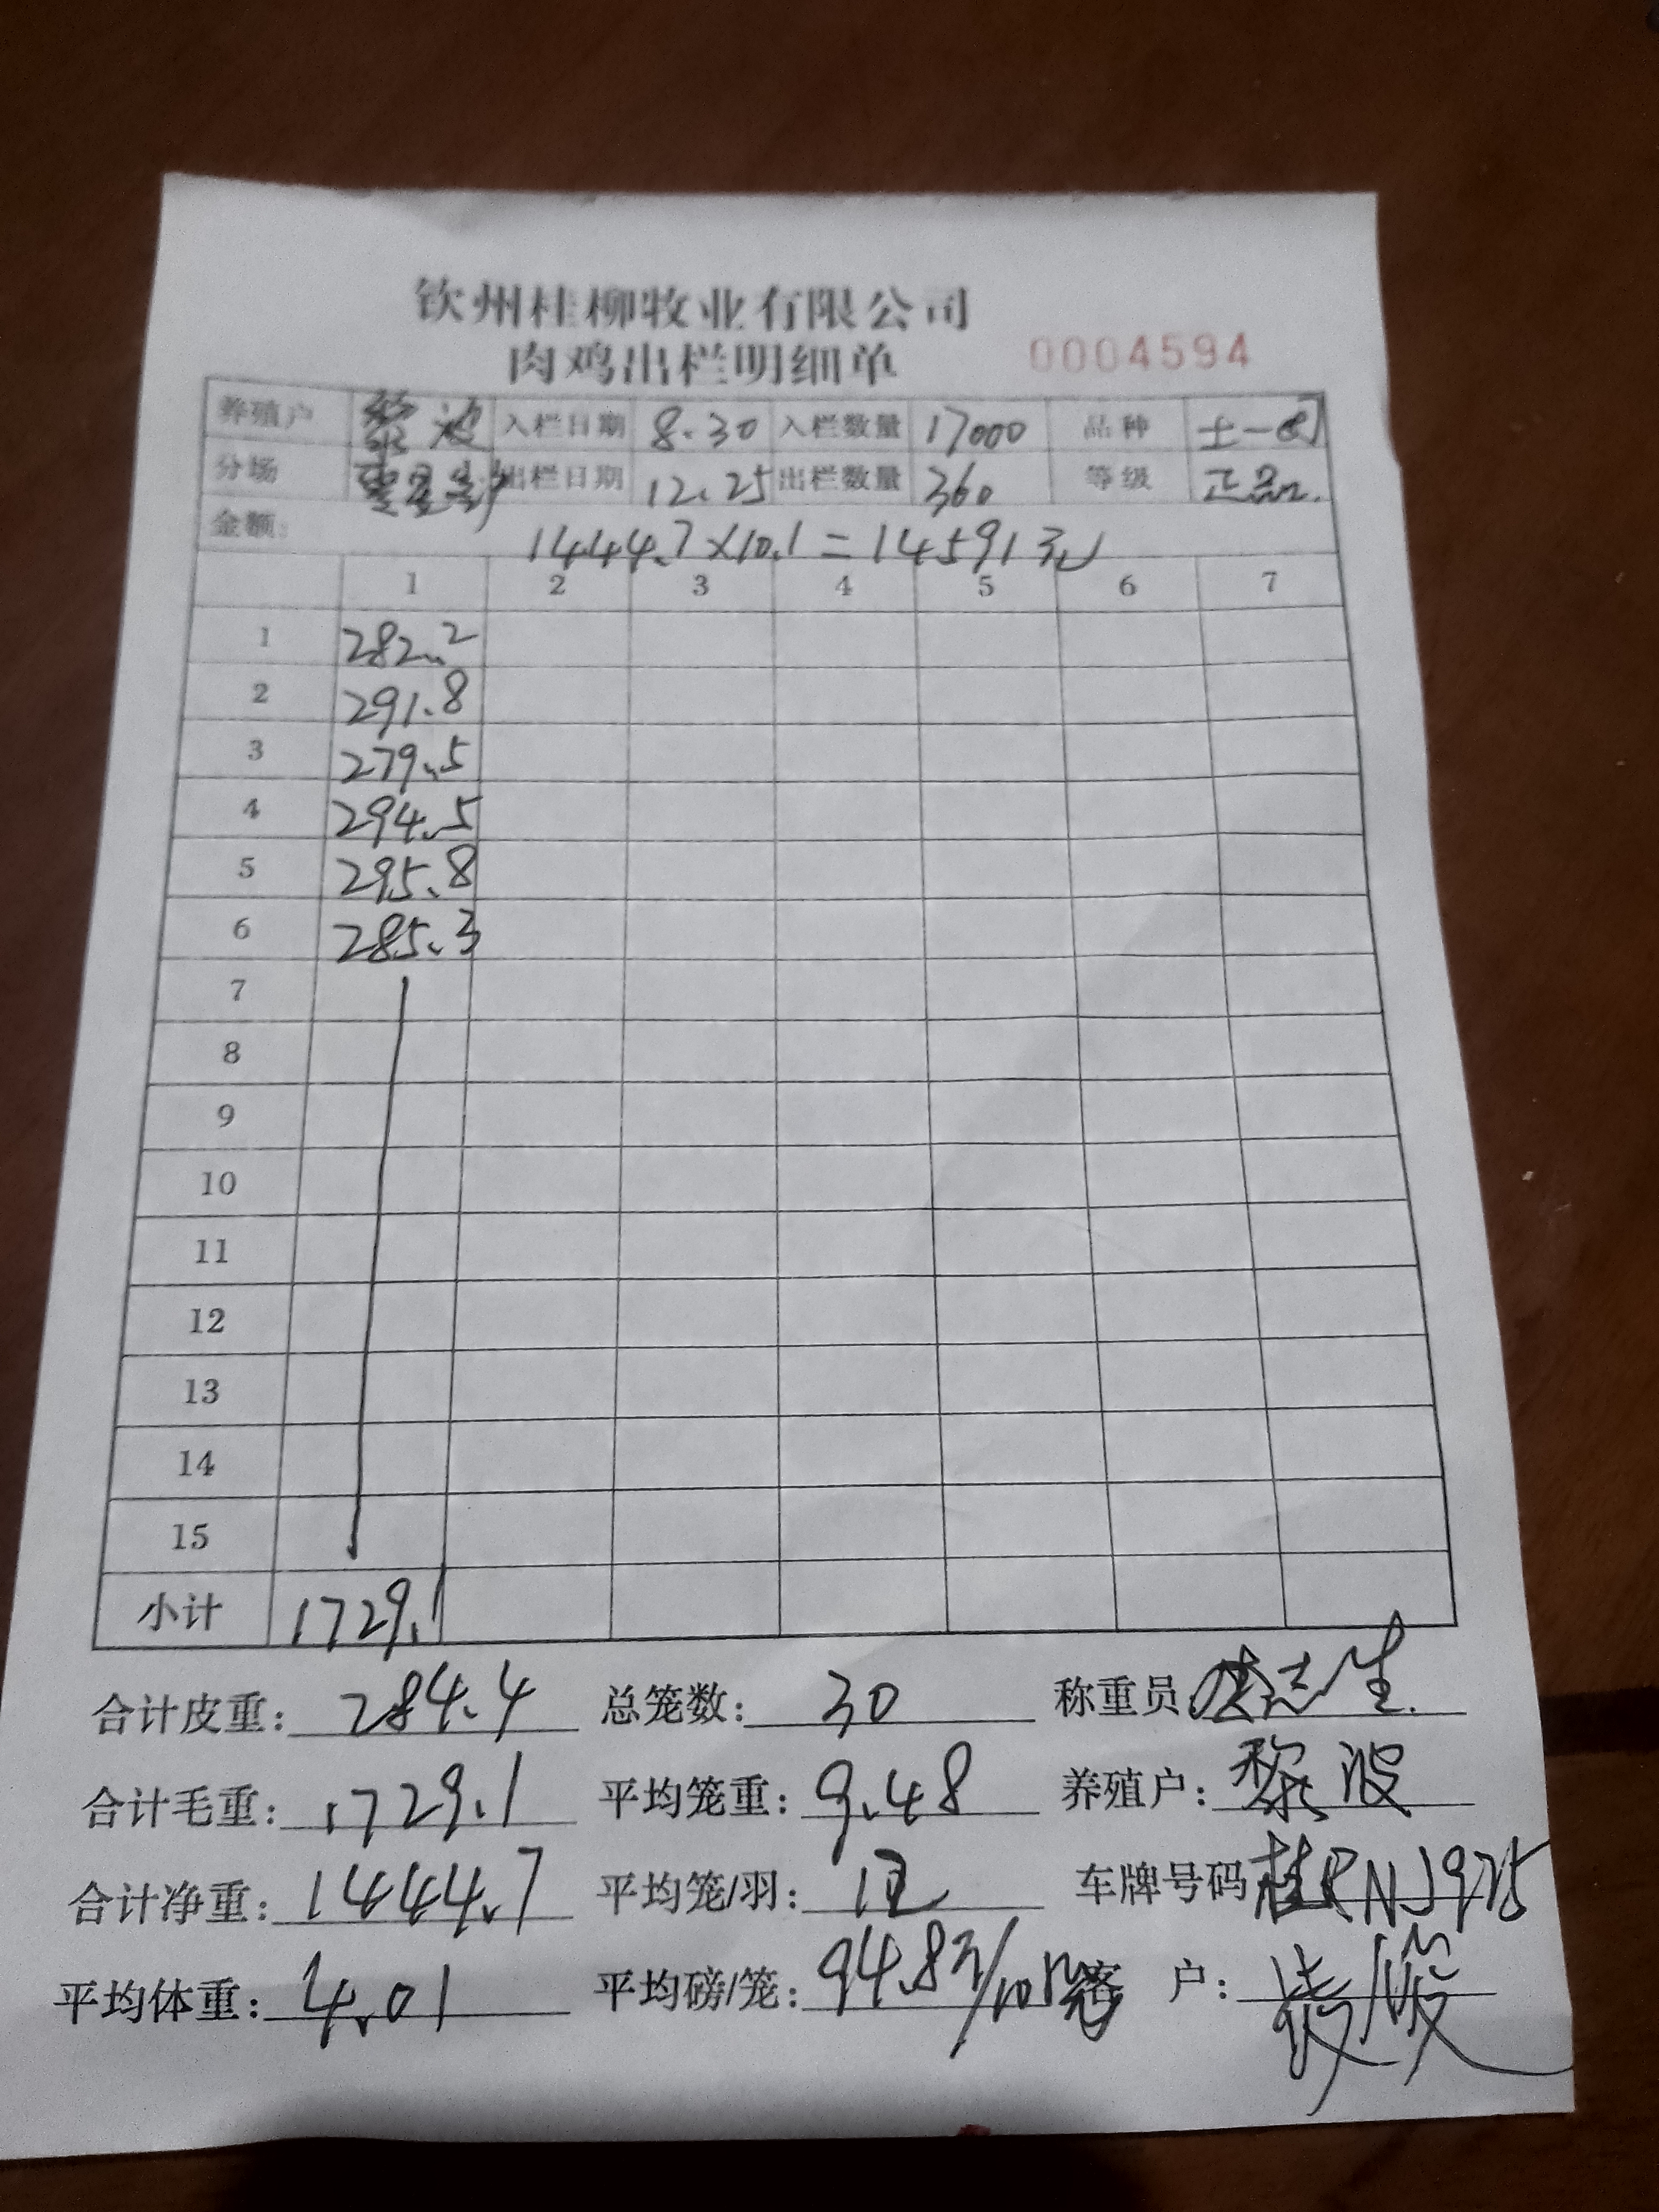 钦州桂柳牧业有限公司
肉鸡出栏明细单 0004594
养殖户 黎波 入栏日期 8.30 入栏数量 17000 品种 土一
分场 出栏日期 12.25 出栏数量 360 等级 正品
金额: 1444.7×10.1=14591元
1 2 3 4 5 6 7
1 282.2
2 291.8
3 279.5
4 294.5
5 295.8
6 285.3
7
8
9
10
11
12
13
14
15
小计 1729.1
合计皮重: 284.4 总笼数: 30 称重员 志生
合计毛重: 1729.1 平均笼重: 9.48 养殖户: 黎波
合计净重: 1444.7 平均笼/羽: 12 车牌号码 桂RNJ975
平均体重: 4.01 平均磅/笼: 94.8 客户: